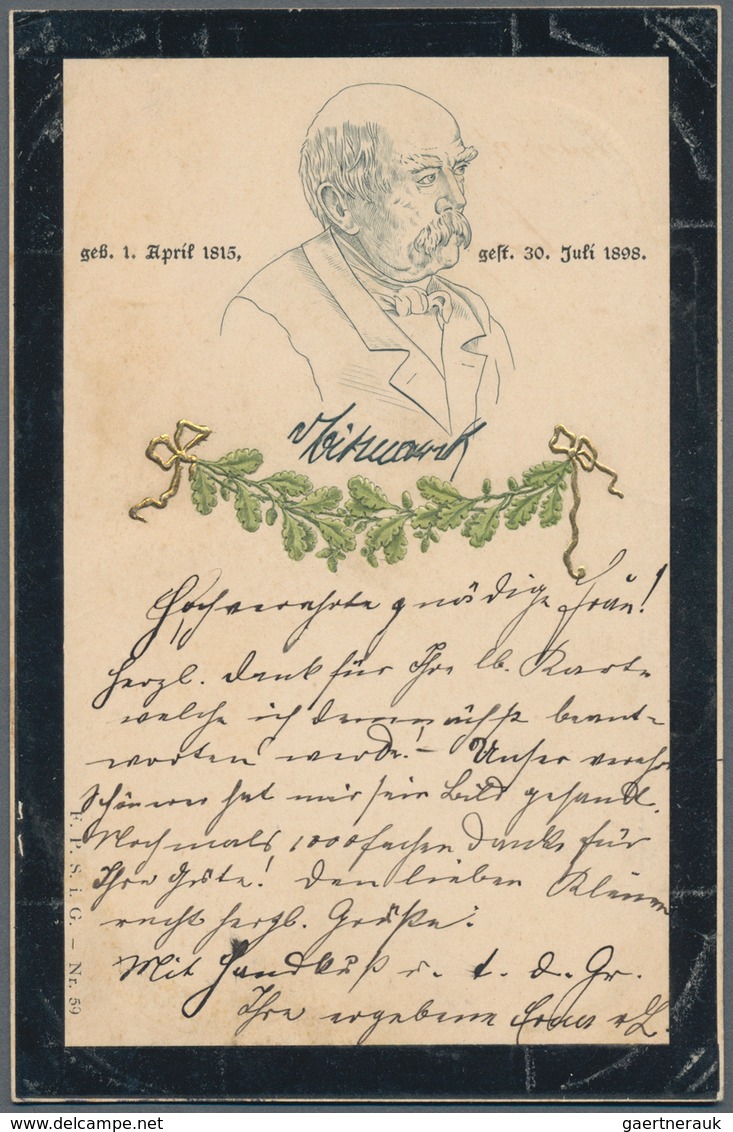 geb. 1. April 1815,
gest. 30. Juli 1898.
v Bismarck
Hochverehrte gnädige Frau!
Herzl. Dank für Ihre lb. Karte
welche ich demnächst beant-
worten werde! – Unser verehr
hat mir sein Bild gesandt.
Nochmals 1000fachen Dank für
Ihre Güte! Den lieben Kleinen
recht herzl. Grüße.
Mit Handkuß u. t. d. Gr.
Ihre ergebene
F. P. S. i. G. – Nr. 59
gaertnerauk